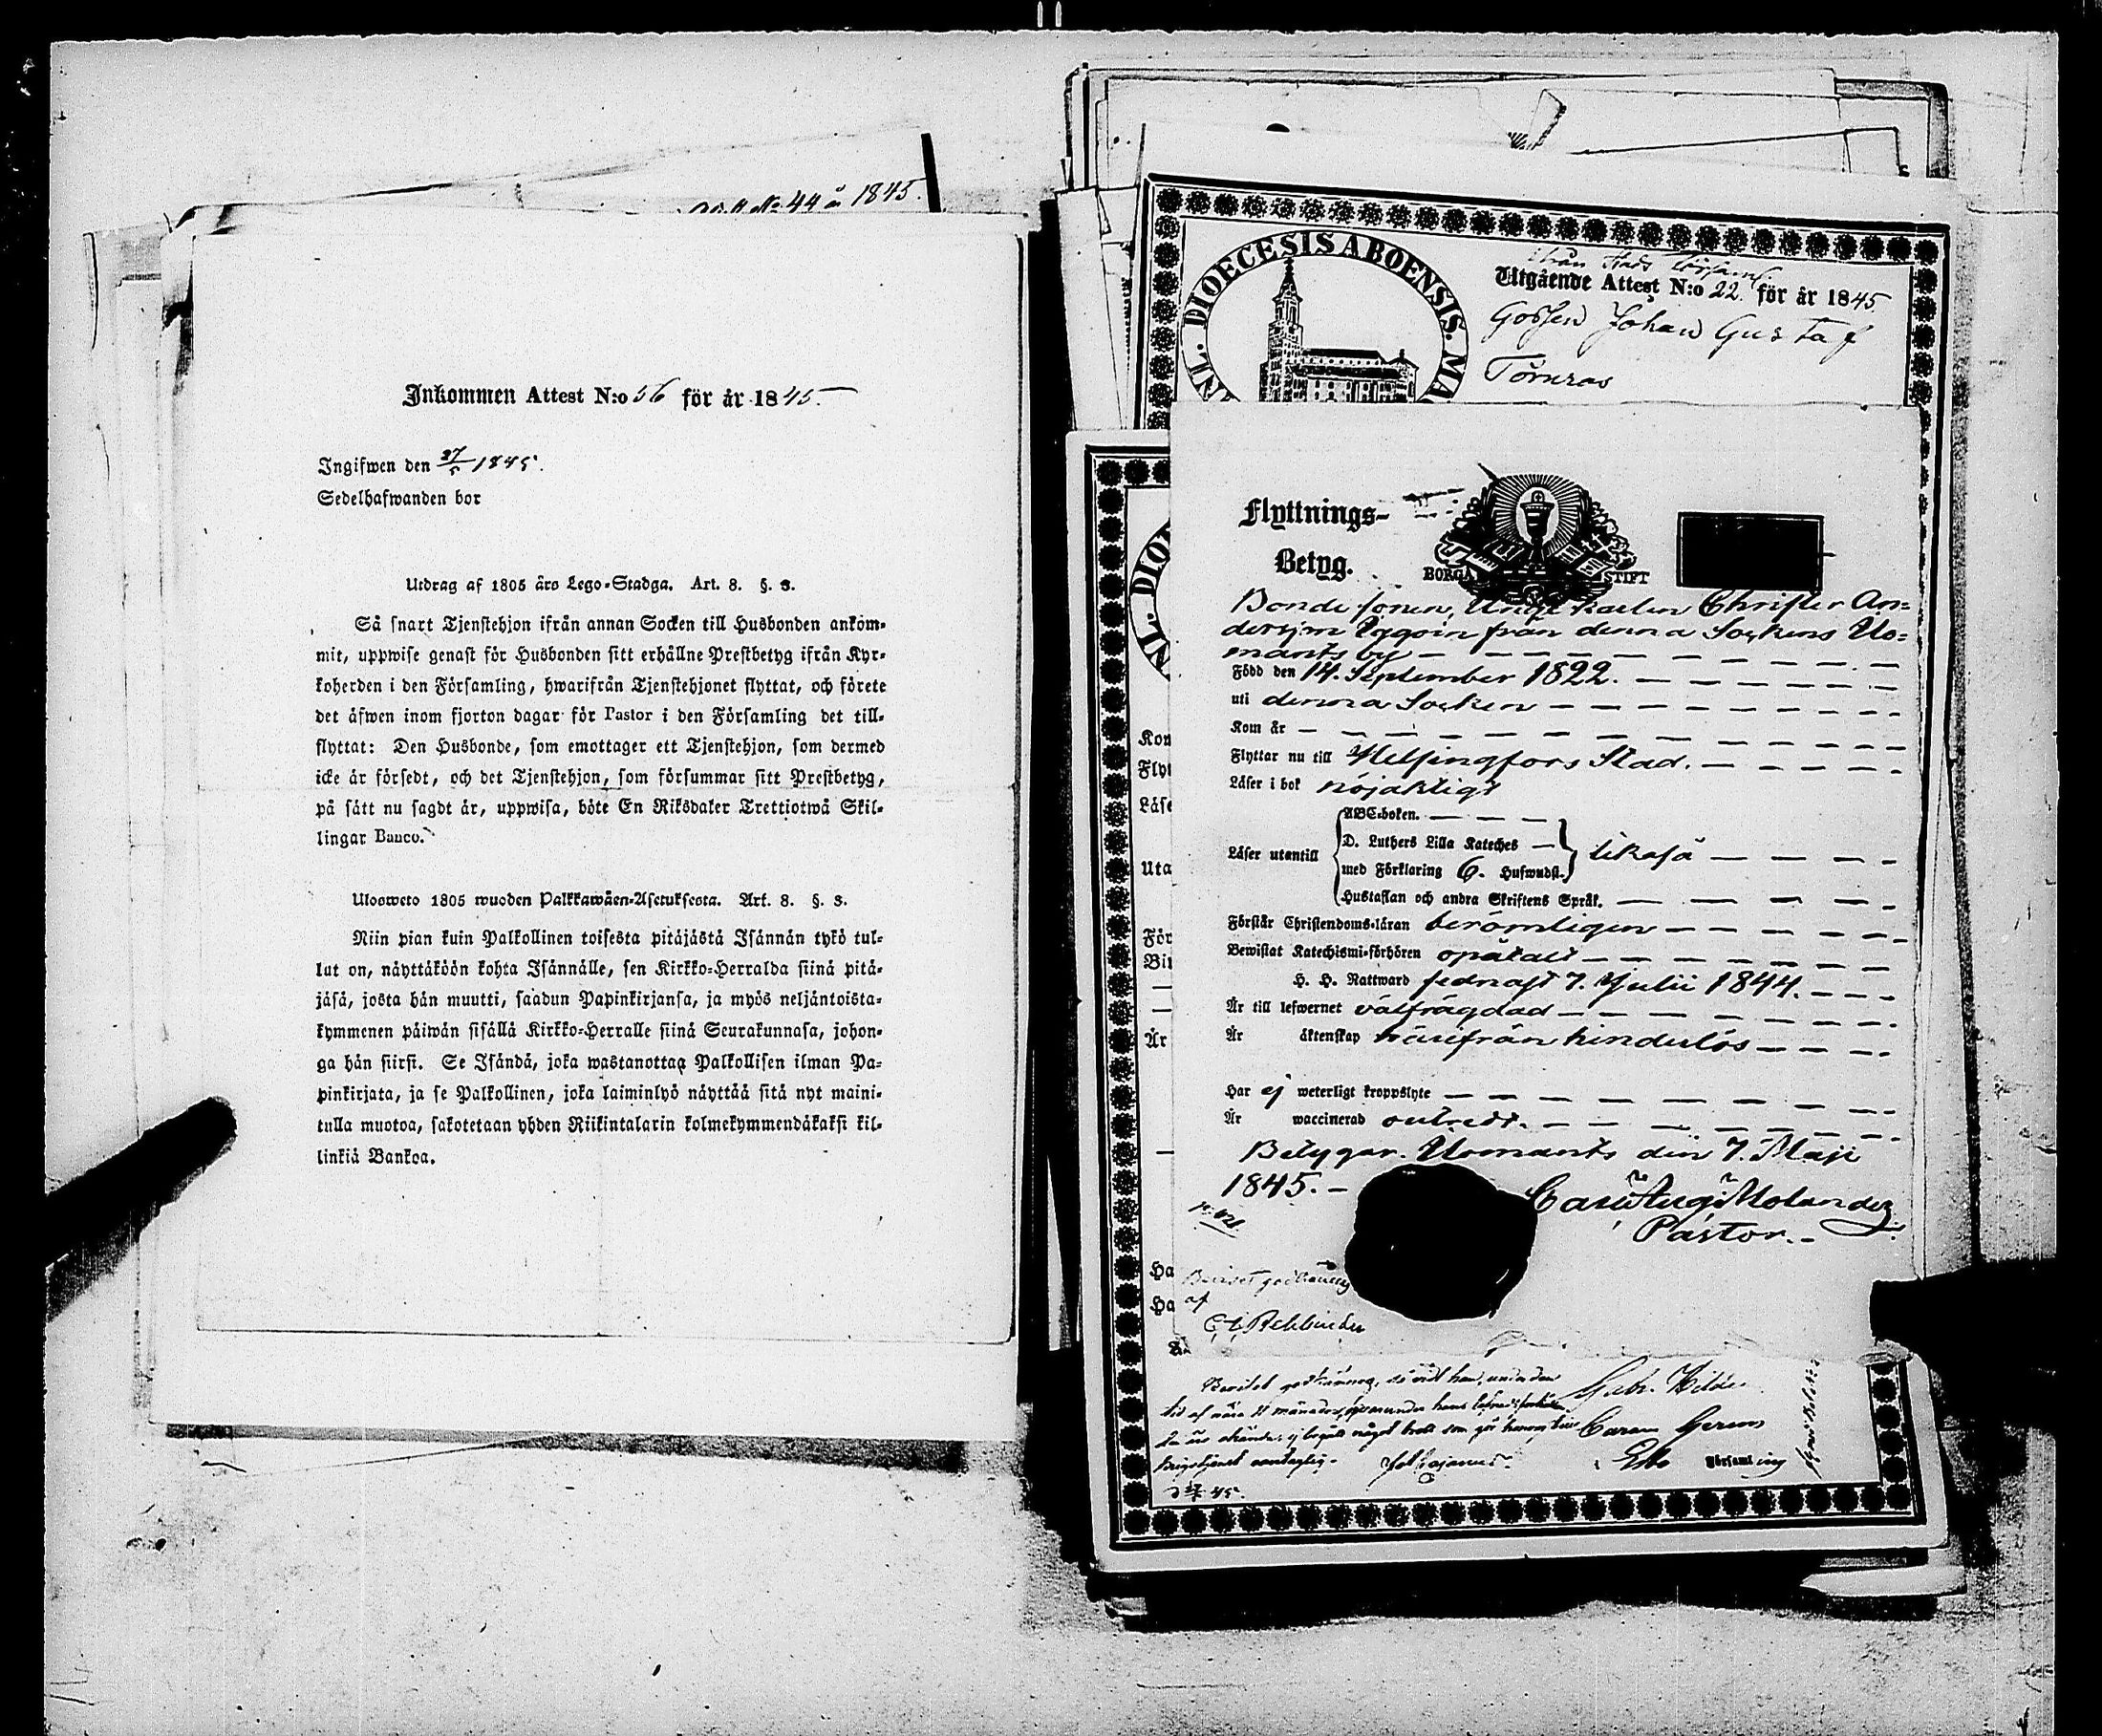 Attest No 44 år 1845.
Inkommen Attest N:o 56 för år 1845.
Ingifwen den 27/5 1845.
Sedelhafwanden bor
Utdrag af 1805 års Lego-Stadga. Art. 8. §. 3.
Så snart Tjenstehjon ifrån annan Socken till Husbonden ankom-
mit, uppwise genast för Husbonden sitt erhållne Prestbetyg ifrån Kyr-
koherden i den Församling, hwarifrån Tjenstehjonet flyttat, och förete
det äfwen inom fjorton dagar för Pastor i den Församling det till-
flyttat: Den Husbonde, som emottager ett Tjenstehjon, som dermed
icke är försedt, och det Tjenstehjon, som försummar sitt Prestbetyg,
på sätt nu sagdt är, uppwisa, böte En Riksdaler Trettiotwå Skil-
lingar Banco.
Ulosweto 1805 wuoden Palkkawäen-Asetuksesta. Art. 8. §. 3.
Niin pian kuin Palkollinen toisesta pitäjästä Isännän tykö tul-
lut on, näyttäköön kohta Isännälle, sen Kirkko-Herralda siinä pitä-
jäsä, josta hän muutti, saadun Papinkirjansa, ja myös neljäntoista-
kymmenen päiwän sisällä Kirkko-Herralle siinä Seurakunnasa, johon-
ga hän siirsi. Se Isändä, joka wastanottaa Palkollisen ilman Pa-
pinkirjata, ja se Palkollinen, joka laiminlyö näyttää sitä nyt maini-
tulla muotoa, sakotetaan yhden Riikintalarin kolmekymmendäkaksi kil-
linkiä Bankoa.
DIOECESIS ABOENSIS. MA
NL.
från Stads Församl.
Utgående Attest N:o 22. för år 1845
Gossen Johan Gustaf
Törnroos
NL. DIO
Flyttnings-
Betyg.
BORGÅ STIFT
Bondesonen, Unge karlen Christer An-
dersson från denna Sockens Uo-
mants by
Född den 14. September 1822.
uti denna Socken
Kom år
Flyttar nu till Helsingfors Stad.
Läser i bok nöjaktigt
Läser utantill
ABC-boken.
D. Luthers Lilla Kateches
med Förklaring 6. Hufwudst.
likaså
Hustaflan och andra Skriftens Språk.
Förstår Christendoms-läran berömligen
Bewistat Katechismi-förhören opåtalt
H. H. Nattward sednast 7. Julii 1844.
Är till lefwernet välfrägdad
Är äktenskap härifrån hinderlös
Har ej weterligt kroppslyte
Är waccinerad
Betygar. Uomants den 7. Maji
1845.
Carl Aug: Molander
Pastor.
Beviset godkännes
af
Rehbinder
Kom
Flyt
Läse
Uta
För
Bir
Är
Ha
Ha
Beviset godkännes, så vidt han, under den
tid af nära 11 månader,
Församling
45.